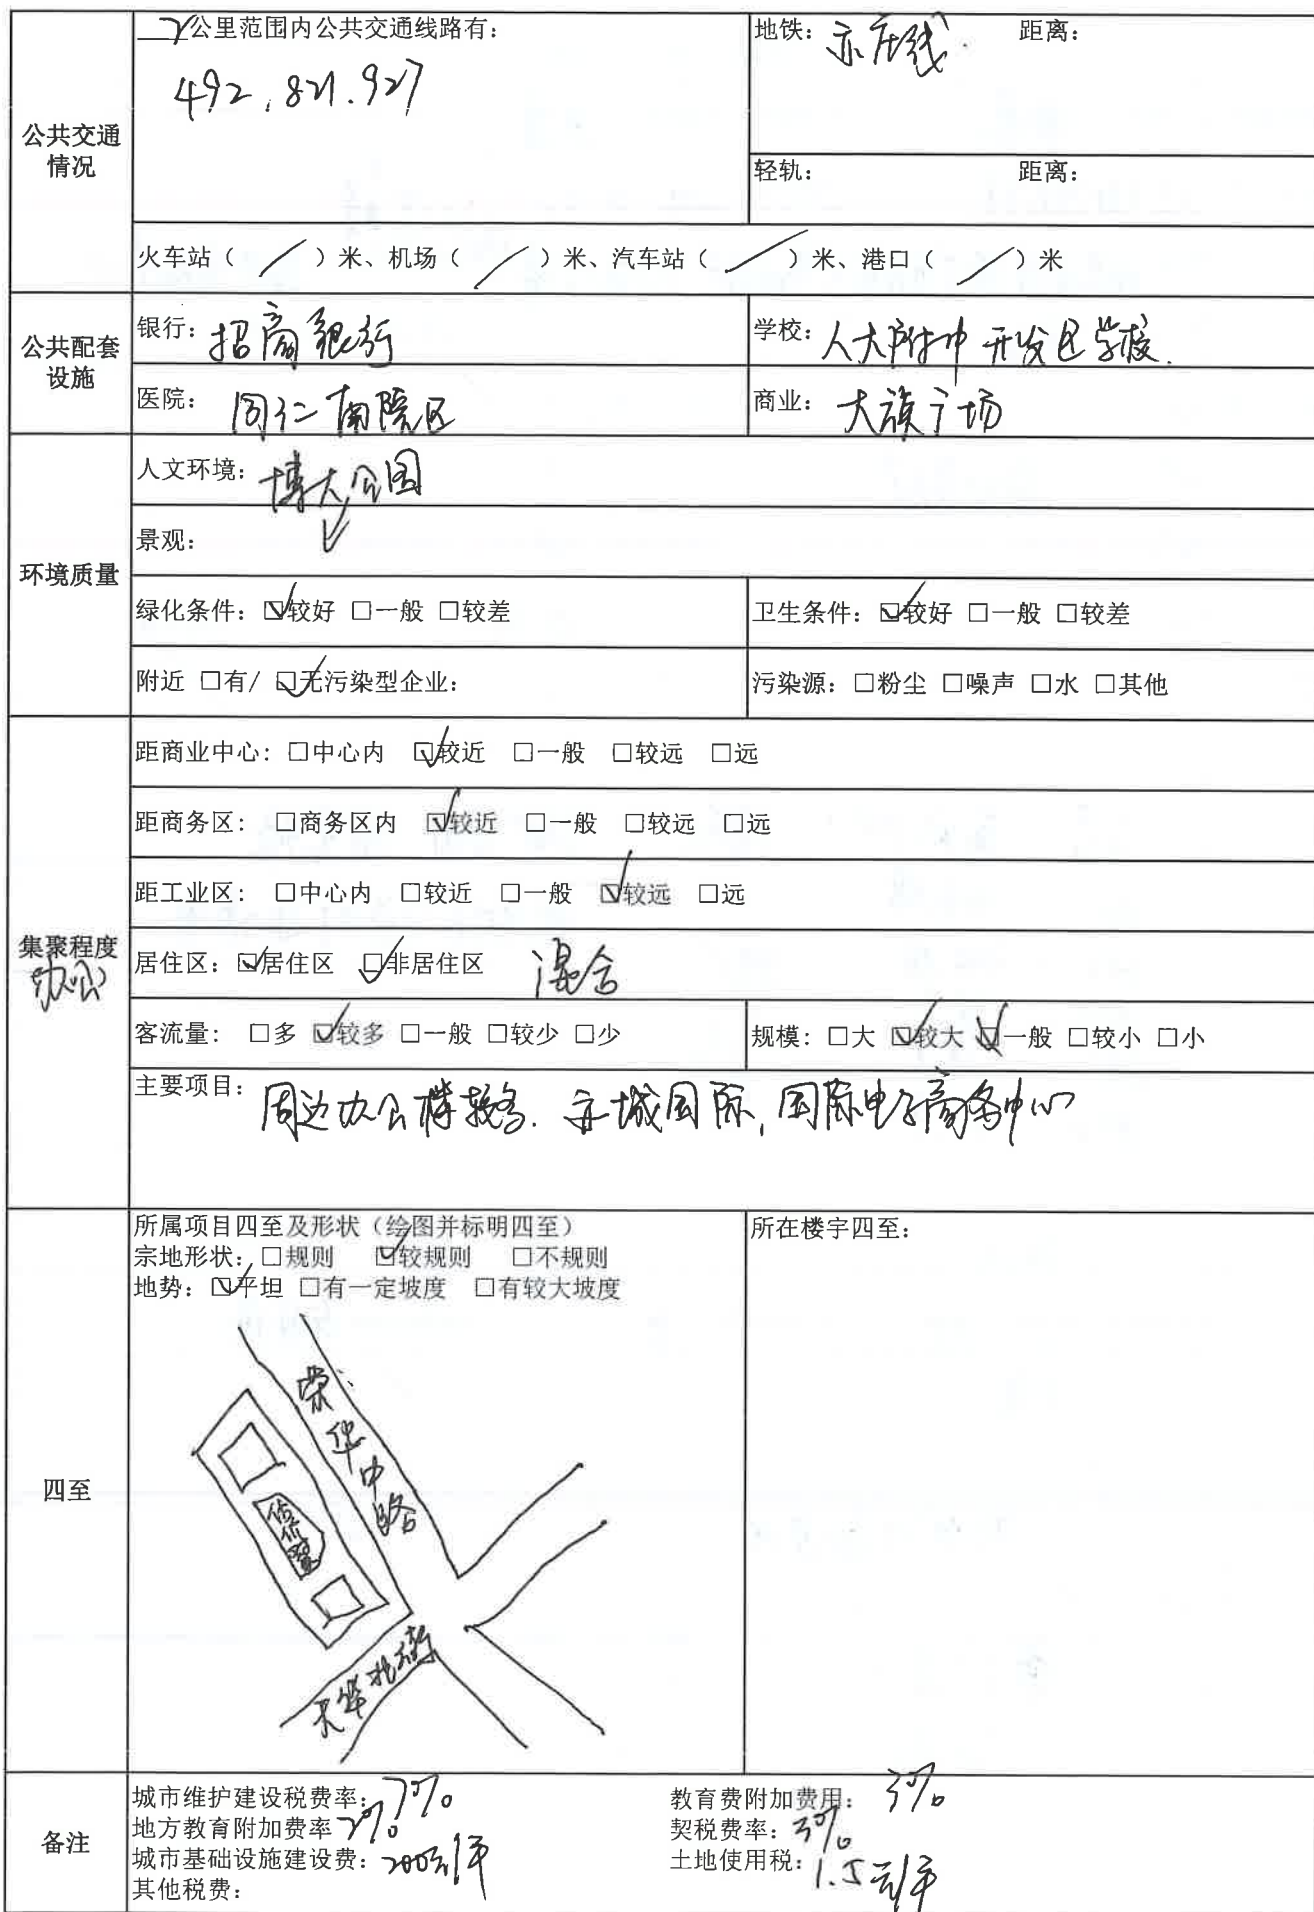 公共交通情况
2公里范围内公共交通线路有：
492.821.927
地铁：亦庄线 距离：
轻轨： 距离：
火车站（／）米、机场（／）米、汽车站（／）米、港口（／）米
公共配套设施
银行：招商银行
学校：人大附中 开发区学校.
医院：同仁南院区
商业：大族广场
环境质量
人文环境：博大公园
景观：
绿化条件：☑较好 □一般 □较差
卫生条件：☑较好 □一般 □较差
附近 □有/ ☑无污染型企业：
污染源：□粉尘 □噪声 □水 □其他
集聚程度
办公
距商业中心：□中心内 ☑较近 □一般 □较远 □远
距商务区： □商务区内 ☑较近 □一般 □较远 □远
距工业区： □中心内 □较近 □一般 ☑较远 □远
居住区：☑居住区 ☑非居住区 混合
客流量： □多 ☑较多 □一般 □较少 □少
规模：□大 ☑较大 ☑一般 □较小 □小
主要项目：周边办公楼较多. 亦城国际, 国际电子商务中心
四至
所属项目四至及形状（绘图并标明四至）
宗地形状：□规则 ☑较规则 □不规则
地势：☑平坦 □有一定坡度 □有较大坡度
所在楼宇四至：
荣华中路
估价对象
天华北街
备注
城市维护建设税费率：7%
教育费附加费用：3%
地方教育附加费率 2%
契税费率：3%
城市基础设施建设费：200元/平
土地使用税：1.5元/平
其他税费：